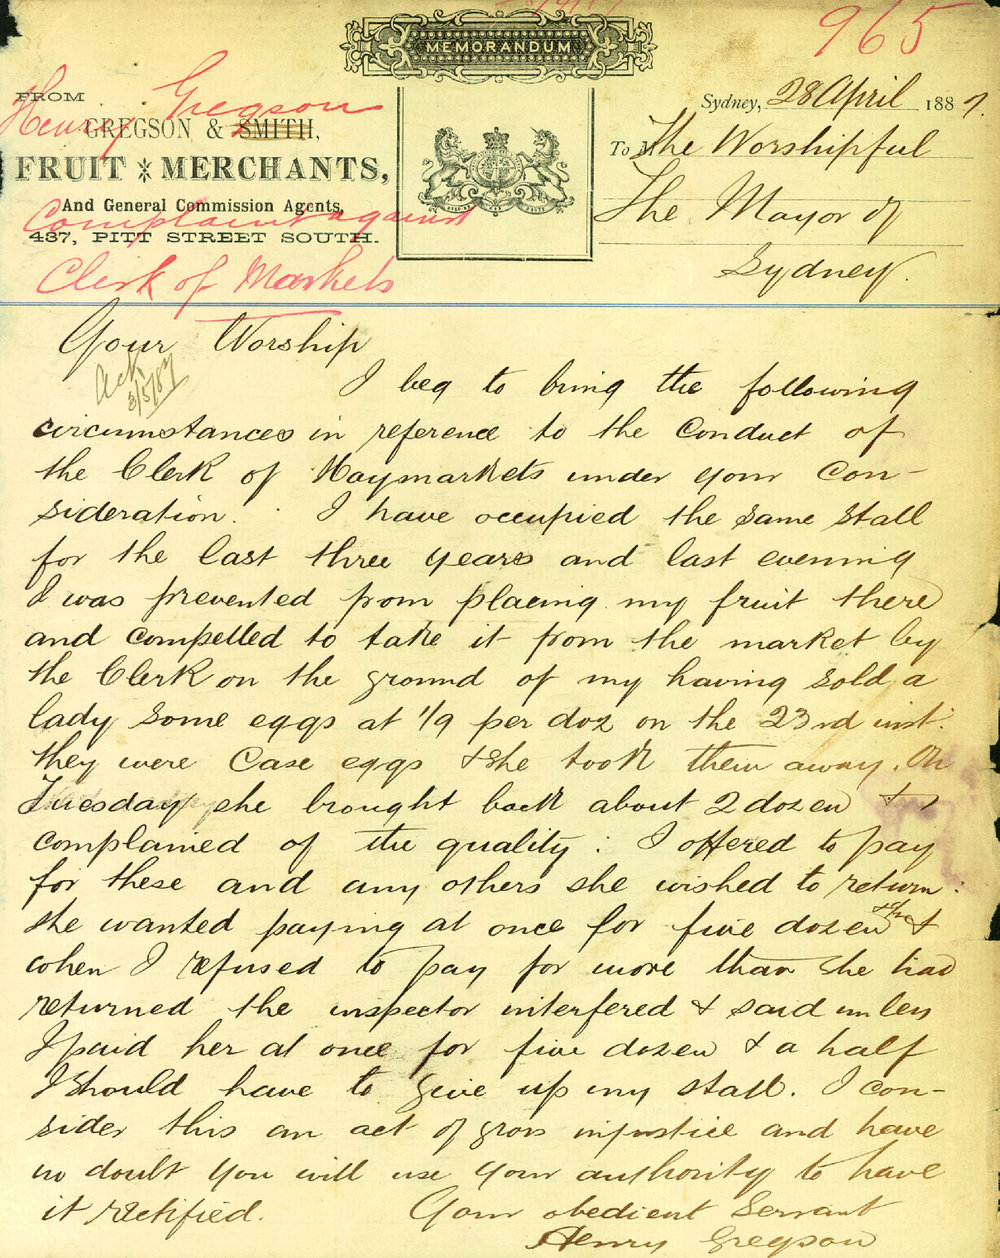 965
MEMORANDUM
FROM
Henry Gregson
GREGSON & SMITH,
FRUIT MERCHANTS,
And General Commission Agents,
Complaint against
437, PITT STREET SOUTH.
Clerk of Markets
Sydney, 28 April 1887.
To M The Worshipful
The Mayor of
Sydney.
Your Worship
Ack
3/5/87
I beg to bring the following
circumstances in reference to the Conduct of
the Clerk of Haymarkets under your Con-
sideration. I have occupied the same stall
for the last three years and last evening
I was prevented from placing my fruit there
and compelled to take it from the market by
the Clerk on the ground of my having sold a
lady some eggs at 1/9 per doz on the 23rd inst:
they were Case eggs & she took them away. On
Tuesday she brought back about 2 dozen &
complained of the quality: I offered to pay
for these and any others she wished to return:
she wanted paying at once for five dozen &
when I refused to pay for more than she had
returned the inspector interfered & said unless
I paid her at once for five dozen & a half
I should have to give up my stall. I con-
sider this an act of gross injustice and have
no doubt you will use your authority to have
it rectified. Your obedient Servant
Henry Gregson